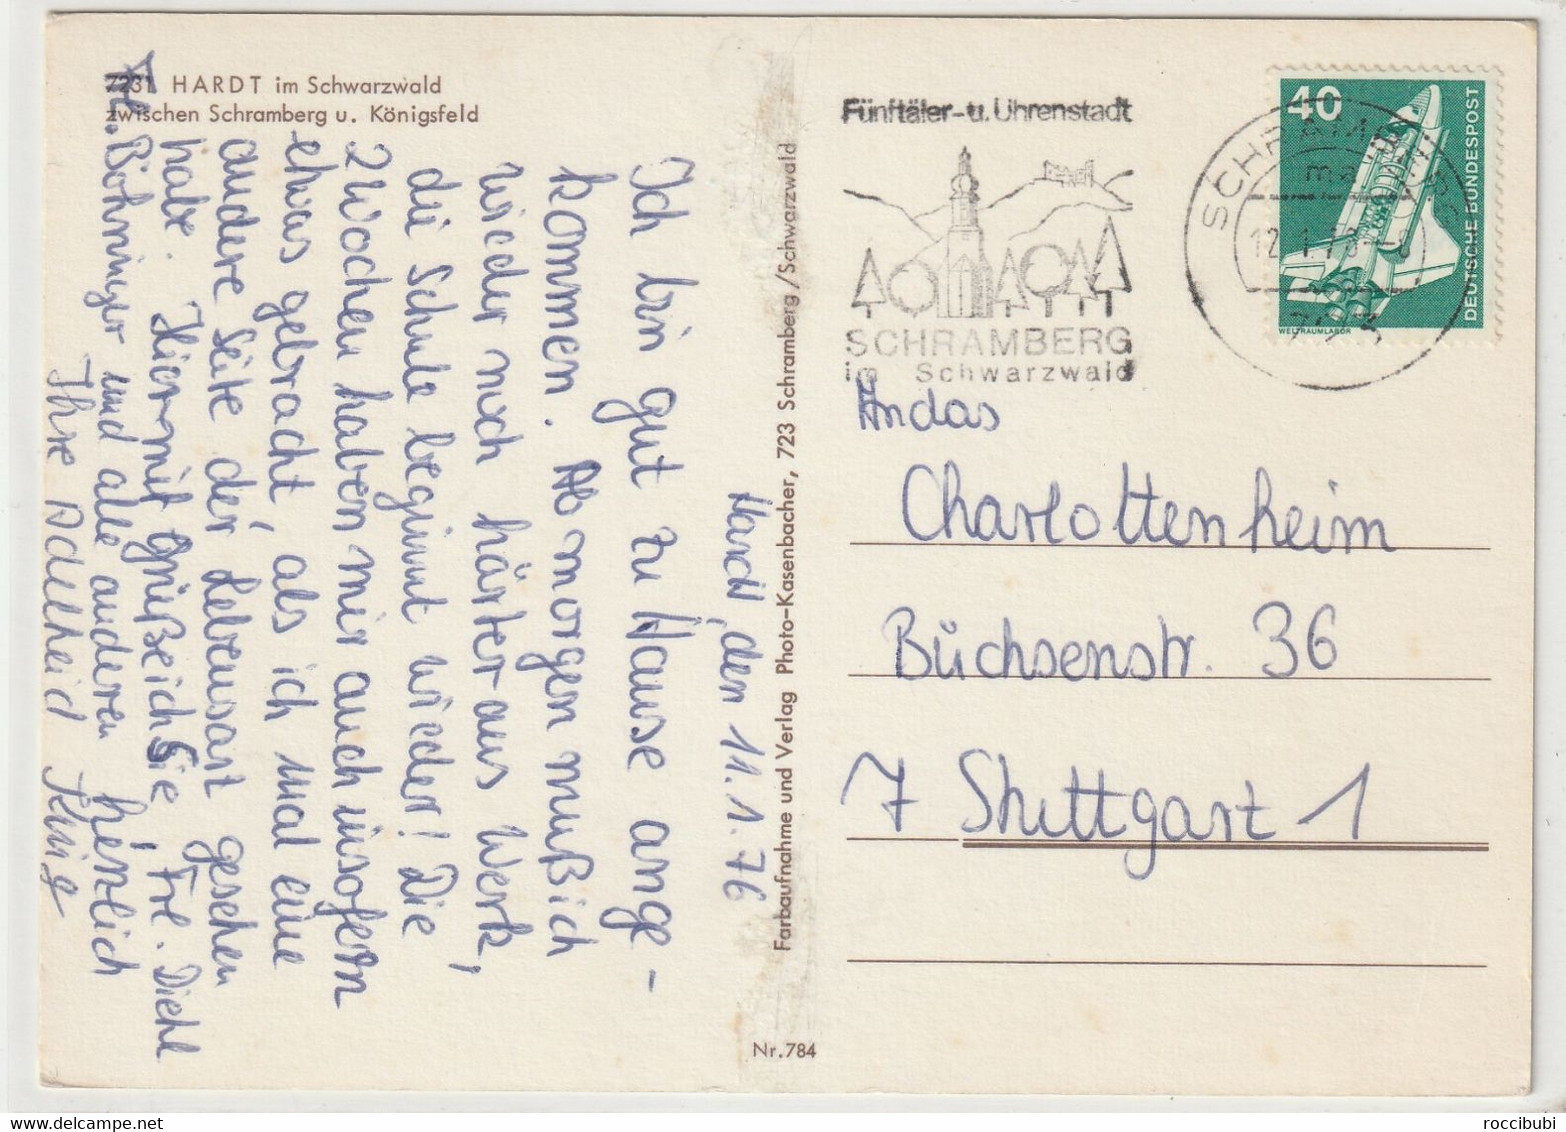 7231 HARDT im Schwarzwald
zwischen Schramberg u. Königsfeld
Hardt, den 11.1.76
Ich bin gut zu Hause ange-
kommen. Ab morgen muß ich
wieder noch härter ans Werk,
die Schule beginnt wieder! Die
2 Wochen haben mir auch insofern
etwas gebracht, als ich mal eine
andere Seite der Lebensart gesehen
habe. Hiermit grüße ich Sie, Frl. Diehl
Frl. Böhninger und alle anderen herzlich
Ihre Adelheid King
Farbaufnahme und Verlag Photo-Kasenbacher, 723 Schramberg/Schwarzwald
Nr.784
Fünftäler-u. Uhrenstadt
SCHRAMBERG
im Schwarzwald
SCHRAMBERG
ma
40
DEUTSCHE BUNDESPOST
WELTRAUMLABOR
An das
Charlottenheim
Büchsenstr. 36
7 Stuttgart 1
roccibubi